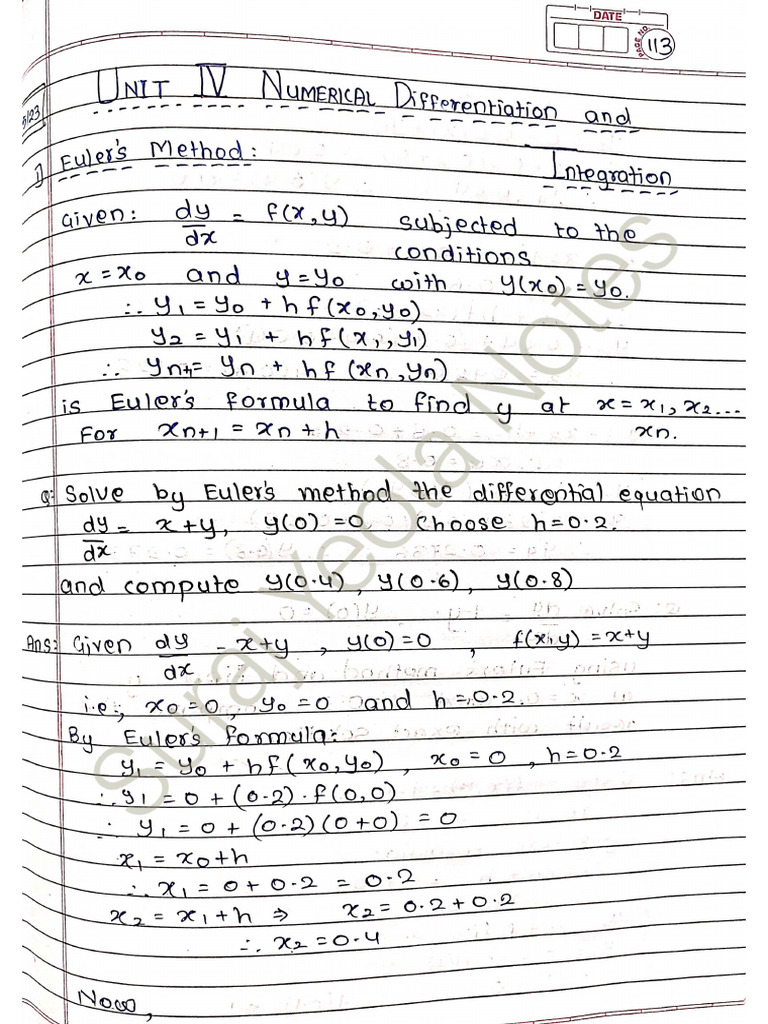 DATE
PAGE NO.
113
UNIT IV NUMERICAL Differentiation and
Integration
1) Euler's Method:
Given: dy/dx = f(x,y) subjected to the
conditions
x = x0 and y = y0 with y(x0) = y0.
∴ y1 = y0 + hf(x0,y0)
y2 = y1 + hf(x1,y1)
∴ yn+1 = yn + hf(xn,yn)
is Euler's formula to find y at x = x1, x2...
For xn+1 = xn + h xn.
Q: Solve by Euler's method the differential equation
dy/dx = x+y, y(0) = 0. Choose h = 0.2.
and compute y(0.4), y(0.6), y(0.8)
Ans: Given dy/dx = x+y, y(0) = 0, f(x,y) = x+y
i.e., x0 = 0, y0 = 0 and h = 0.2.
By Euler's formula:
y1 = y0 + hf(x0,y0), x0 = 0, h = 0.2
∴ y1 = 0 + (0.2).f(0,0)
∴ y1 = 0 + (0.2)(0+0) = 0
x1 = x0 + h
∴ x1 = 0 + 0.2 = 0.2
x2 = x1 + h ⇒ x2 = 0.2 + 0.2
∴ x2 = 0.4
Now,
Suraj Yeola Notes